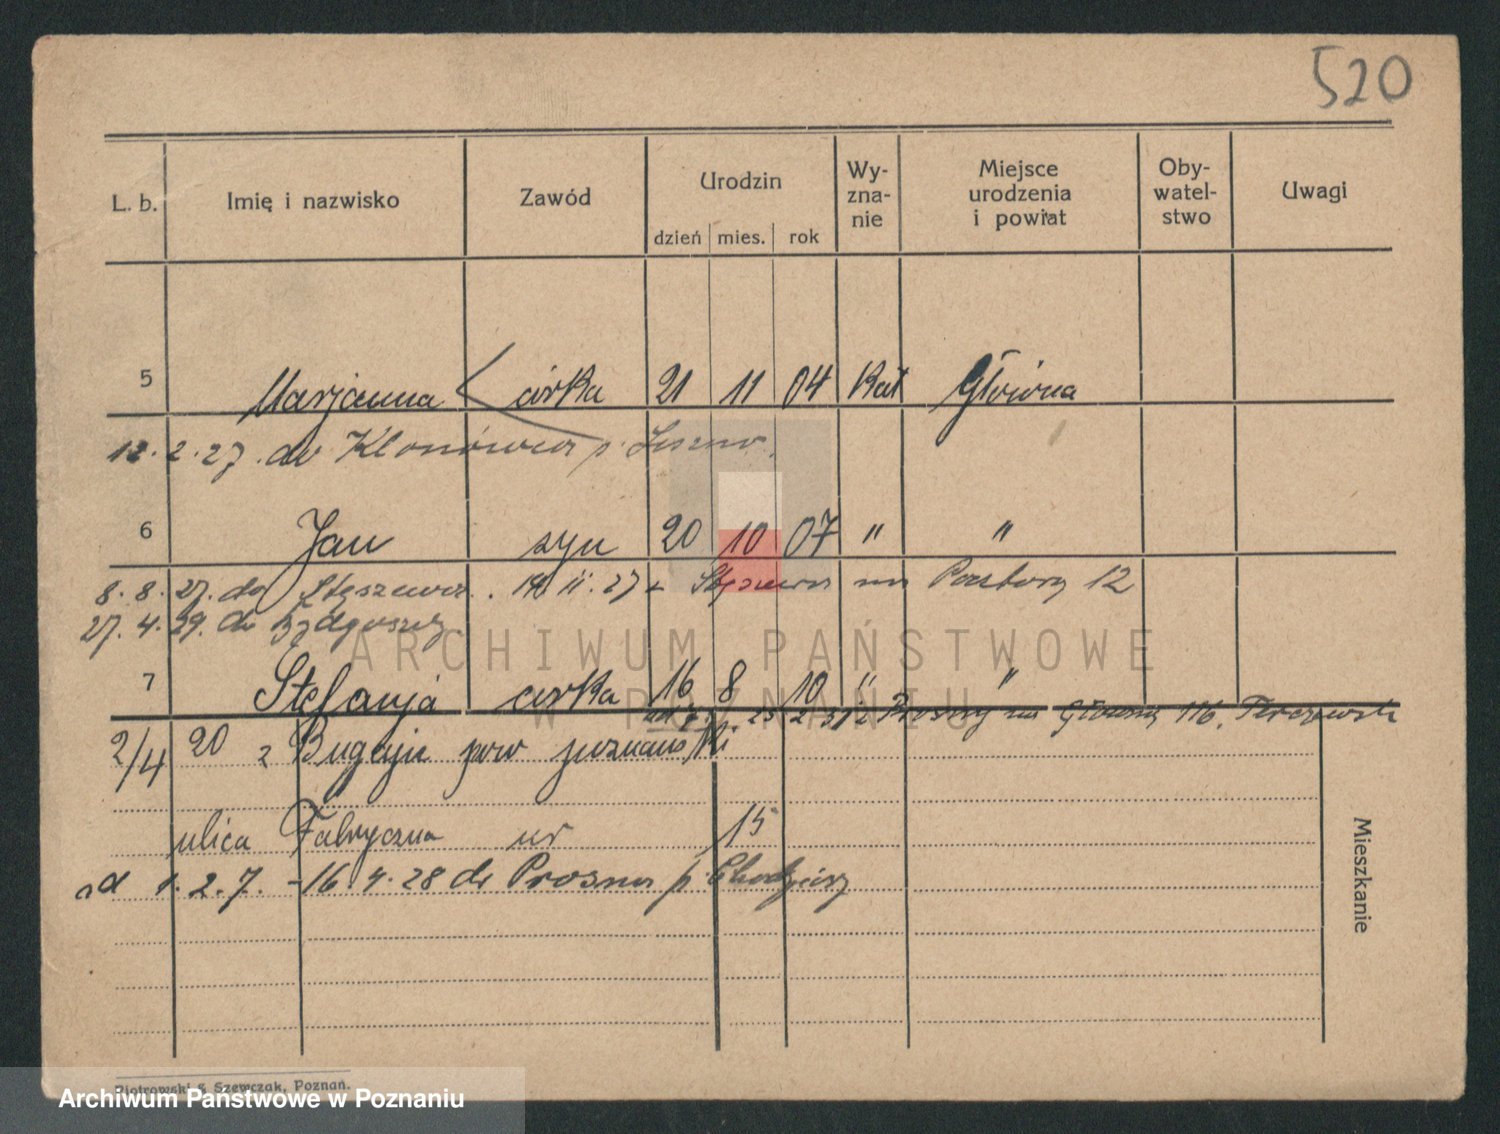 520
L. b. Imię i nazwisko Zawód Urodzin dzień mies. rok Wy-zna-nie Miejsce urodzenia i powiat Oby-watel-stwo Uwagi
5 Marjanna córka 21 11 04 kat Główna
12. 2. 27. do Klonówca p. Leszno.
6 Jan syn 20 10 07 " "
8. 8. 27. do Stęszewa. 14. 11. 27 z Stęszewa na 12
27. 4. 29. do Bydgoszczy
7 Stefanja córka 16 8 10 " "
z Prosny na Główną 116.
2/4 20 z Bugaju pow poznański
ulica Fabryczna nr 15
od 1. 2. 7. - 16. 4. 28 do Prosna p. Chodzież
Mieszkanie
Piotrowski & Szewczak, Poznań.
ARCHIWUM PAŃSTWOWE
W POZNANIU
Archiwum Państwowe w Poznaniu